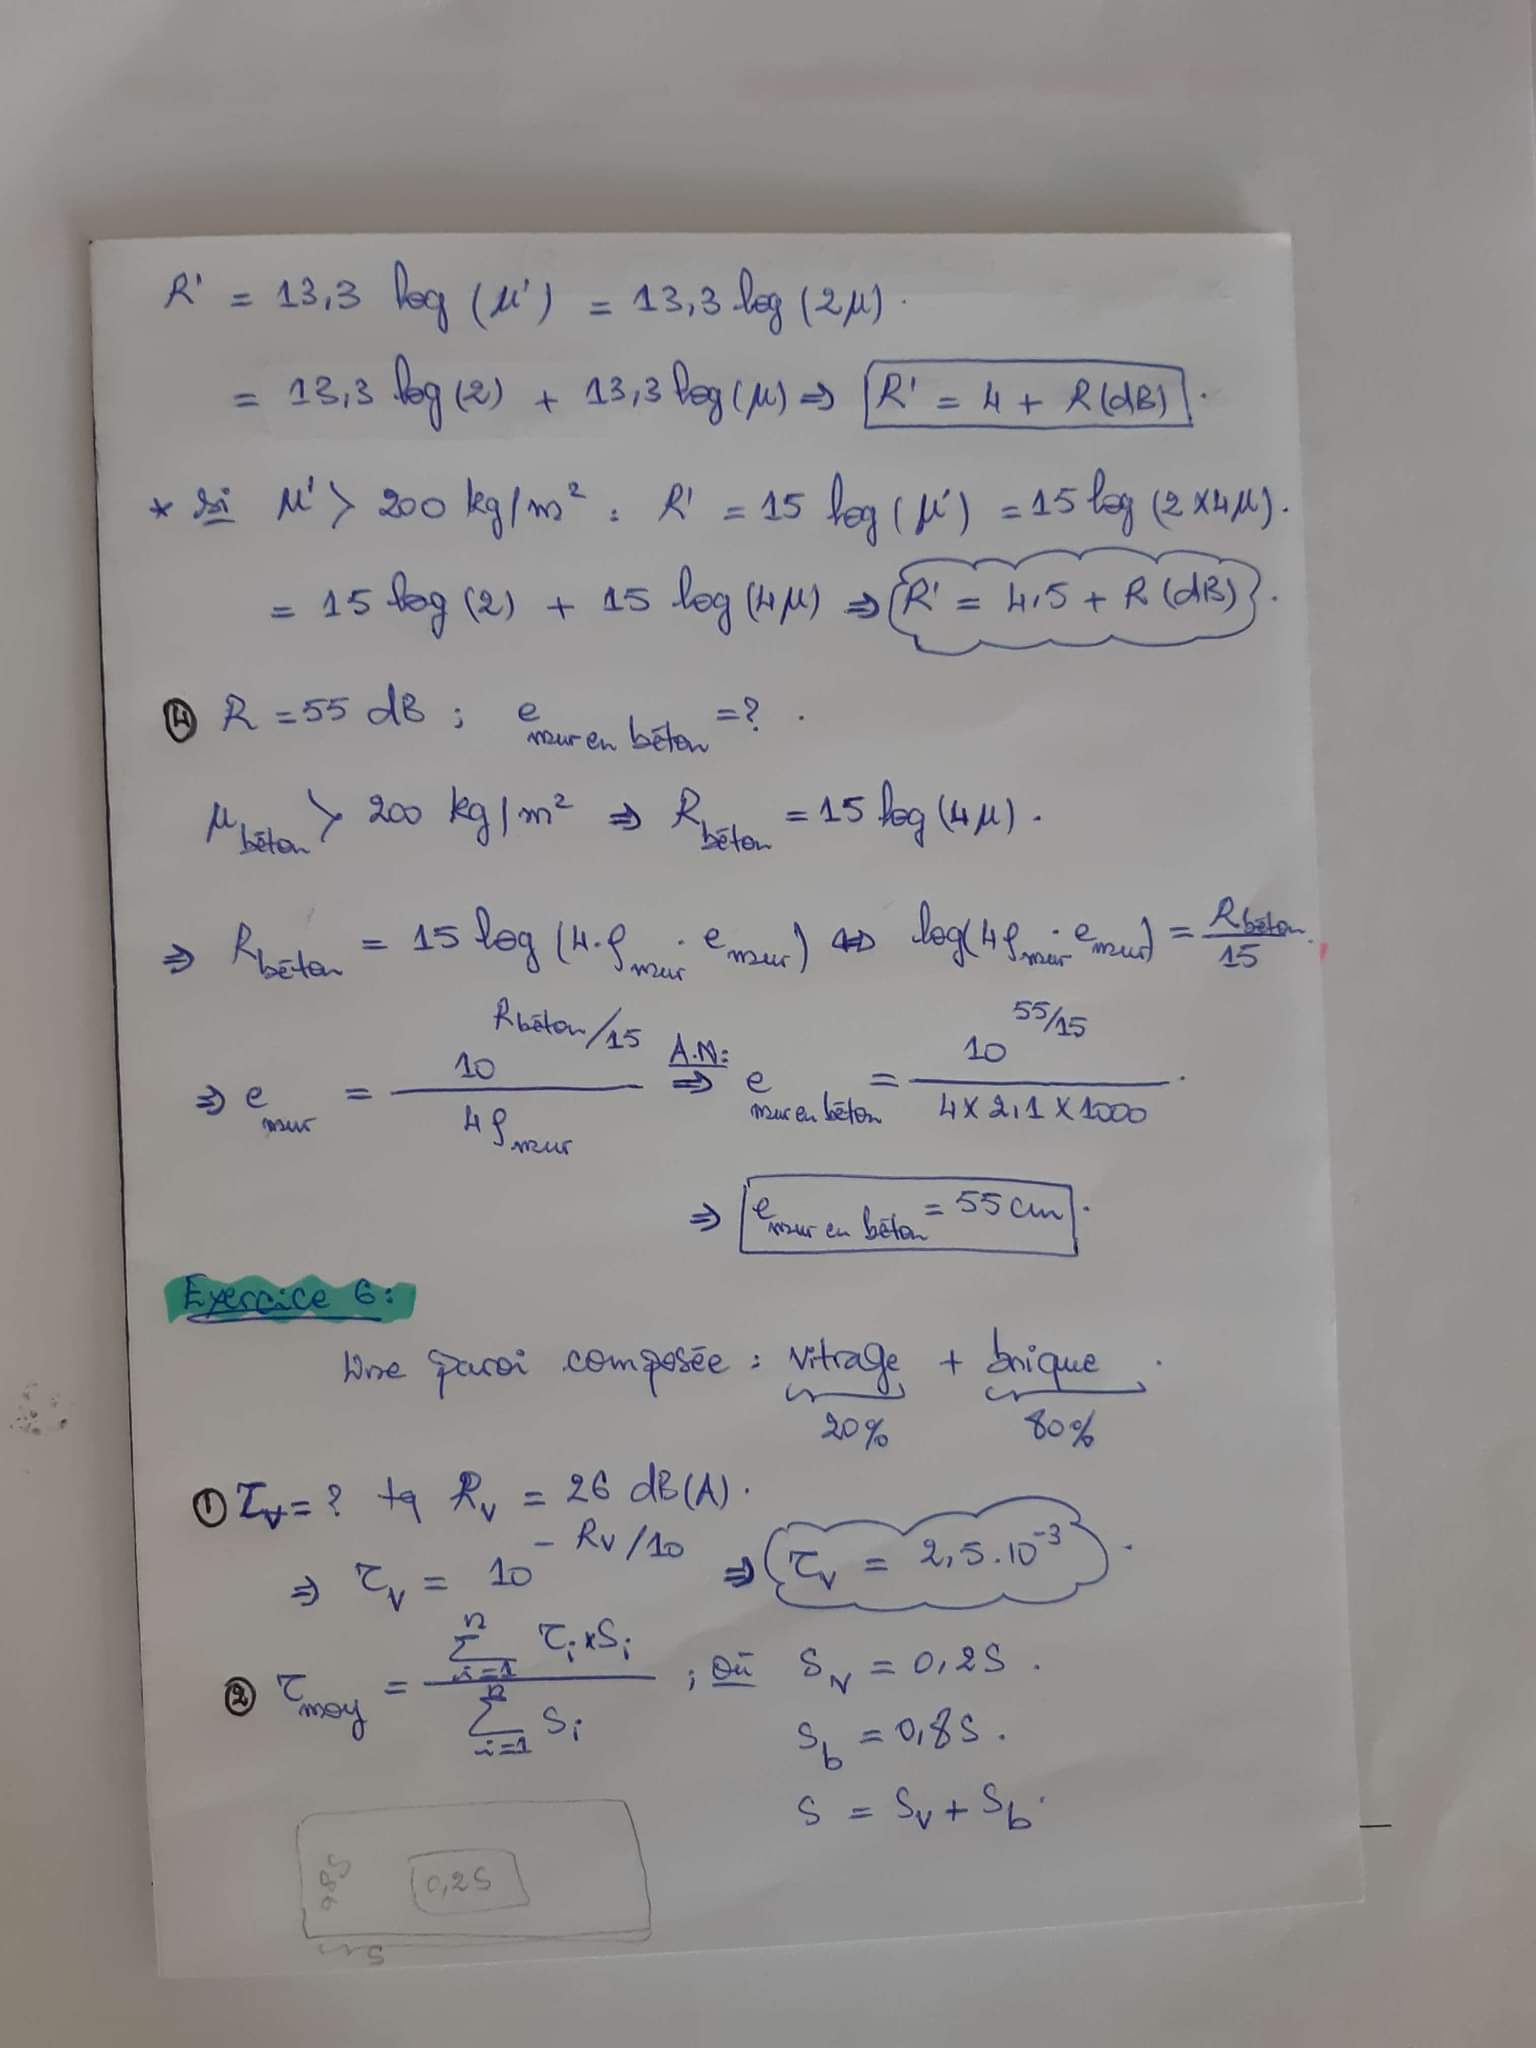 R' = 13,3 log (μ') = 13,3 log (2μ).
= 13,3 log (2) + 13,3 log (μ) ⇒ R' = 4 + R (dB).
* si μ' > 200 kg/m² : R' = 15 log (μ') = 15 log (2 x 4μ).
= 15 log (2) + 15 log (4μ) ⇒ R' = 4,5 + R (dB).
④ R = 55 dB ; e mur en béton = ? .
μ béton > 200 kg/m² ⇒ R béton = 15 log (4μ).
⇒ R béton = 15 log (4.ρ mur . e mur) ⇔ log(4ρ mur . e mur) = R béton / 15.
⇒ e mur = 10^(R béton/15) / 4ρ mur A.N: ⇒ e mur en béton = 10^(55/15) / 4 x 2,1 x 1000 .
⇒ e mur en béton = 55 cm.
Exercice 6:
Une paroi composée : vitrage + brique .
20% 80%
① τv = ? tq Rv = 26 dB(A).
⇒ τv = 10^(-Rv/10) ⇒ τv = 2,5.10⁻³ .
② τ moy = Σ(i=1→n) τi x Si / Σ(i=1→n) Si ; où Sv = 0,2S .
Sb = 0,8S .
S = Sv + Sb.
0,8S 0,2S
S